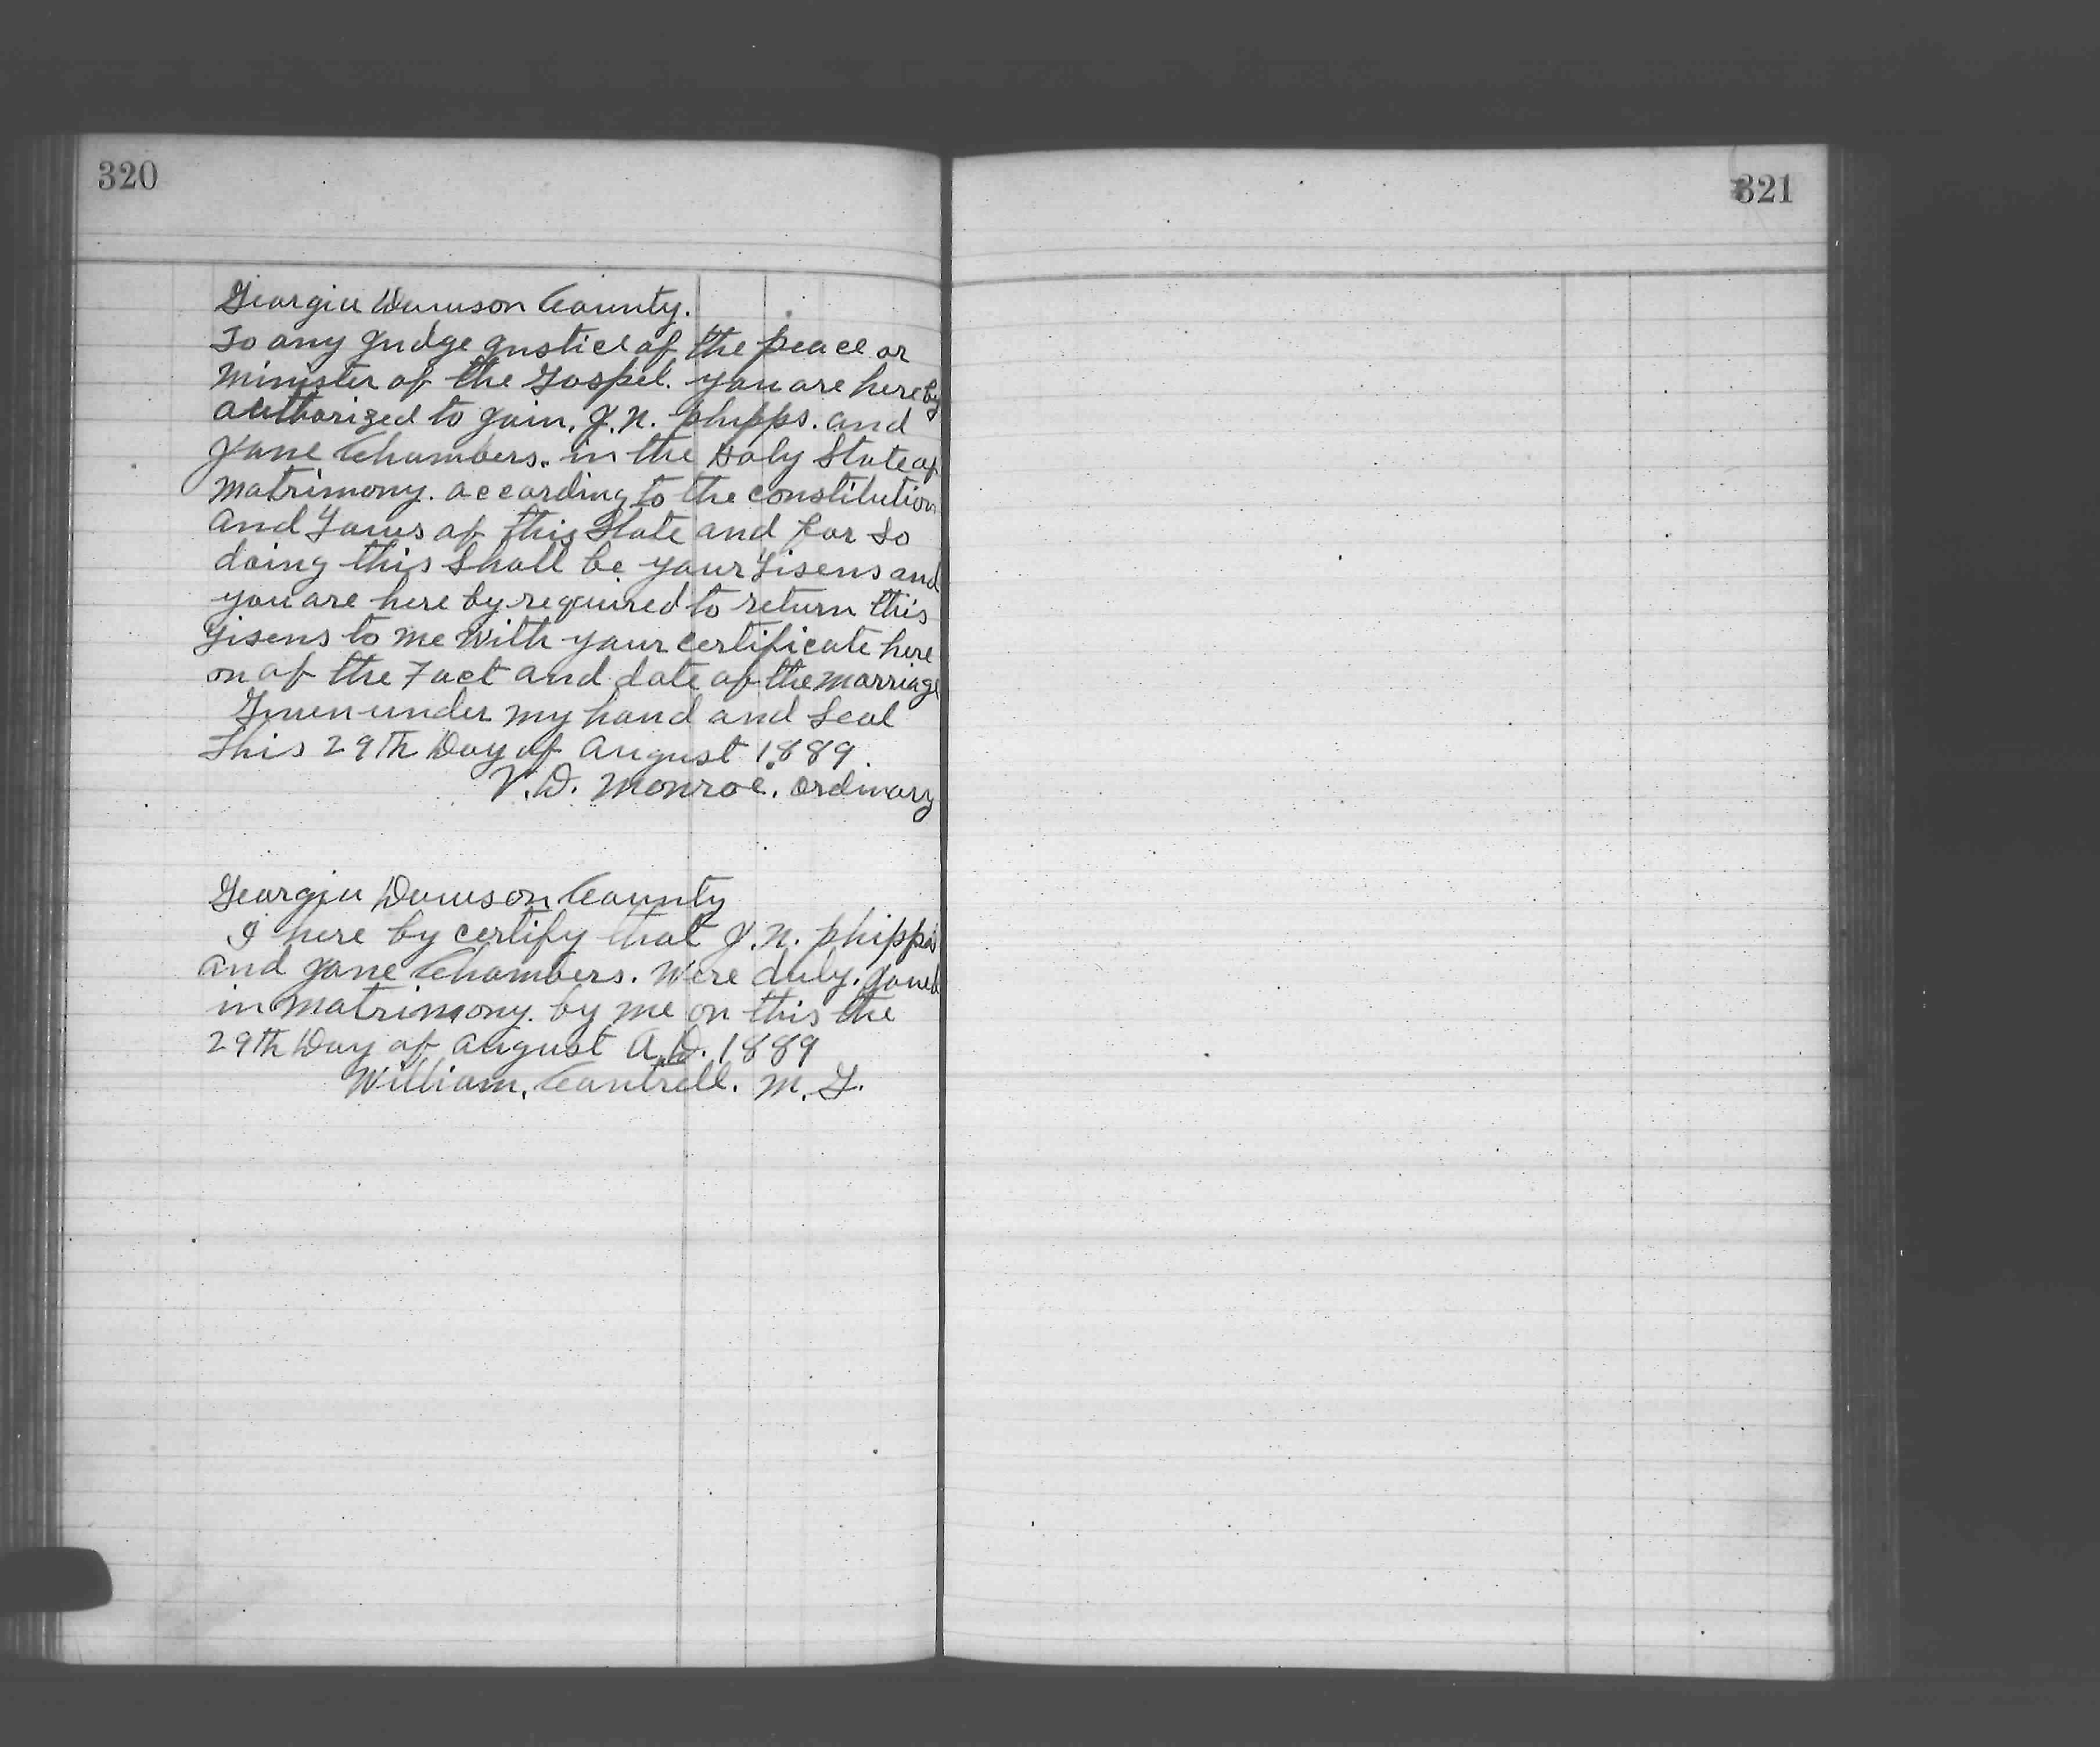 320
Georgia Dawson County.
To any Judge Justice of the peace or
Minister of the Gospel. you are hereby
authorized to join. J. N. phipps. and
Jane Chambers. in the Holy State of
matrimony. according to the constitution
and Laws of this State and for So
doing this Shall be your Lisens and
you are here by required to return this
Lisens to me With your certificate here
on of the Fact and date of the marriage
Given under my hand and Seal
This 29th Day of August 1889.
V. D. Monroe. Ordinary
Georgia Dawson County
I here by certify that J. N. phipps
and Jane Chambers. Were duly. joned
in matrimony. by me on this the
29th Day of august A.D. 1889
William. Cantrell. M. G.
321